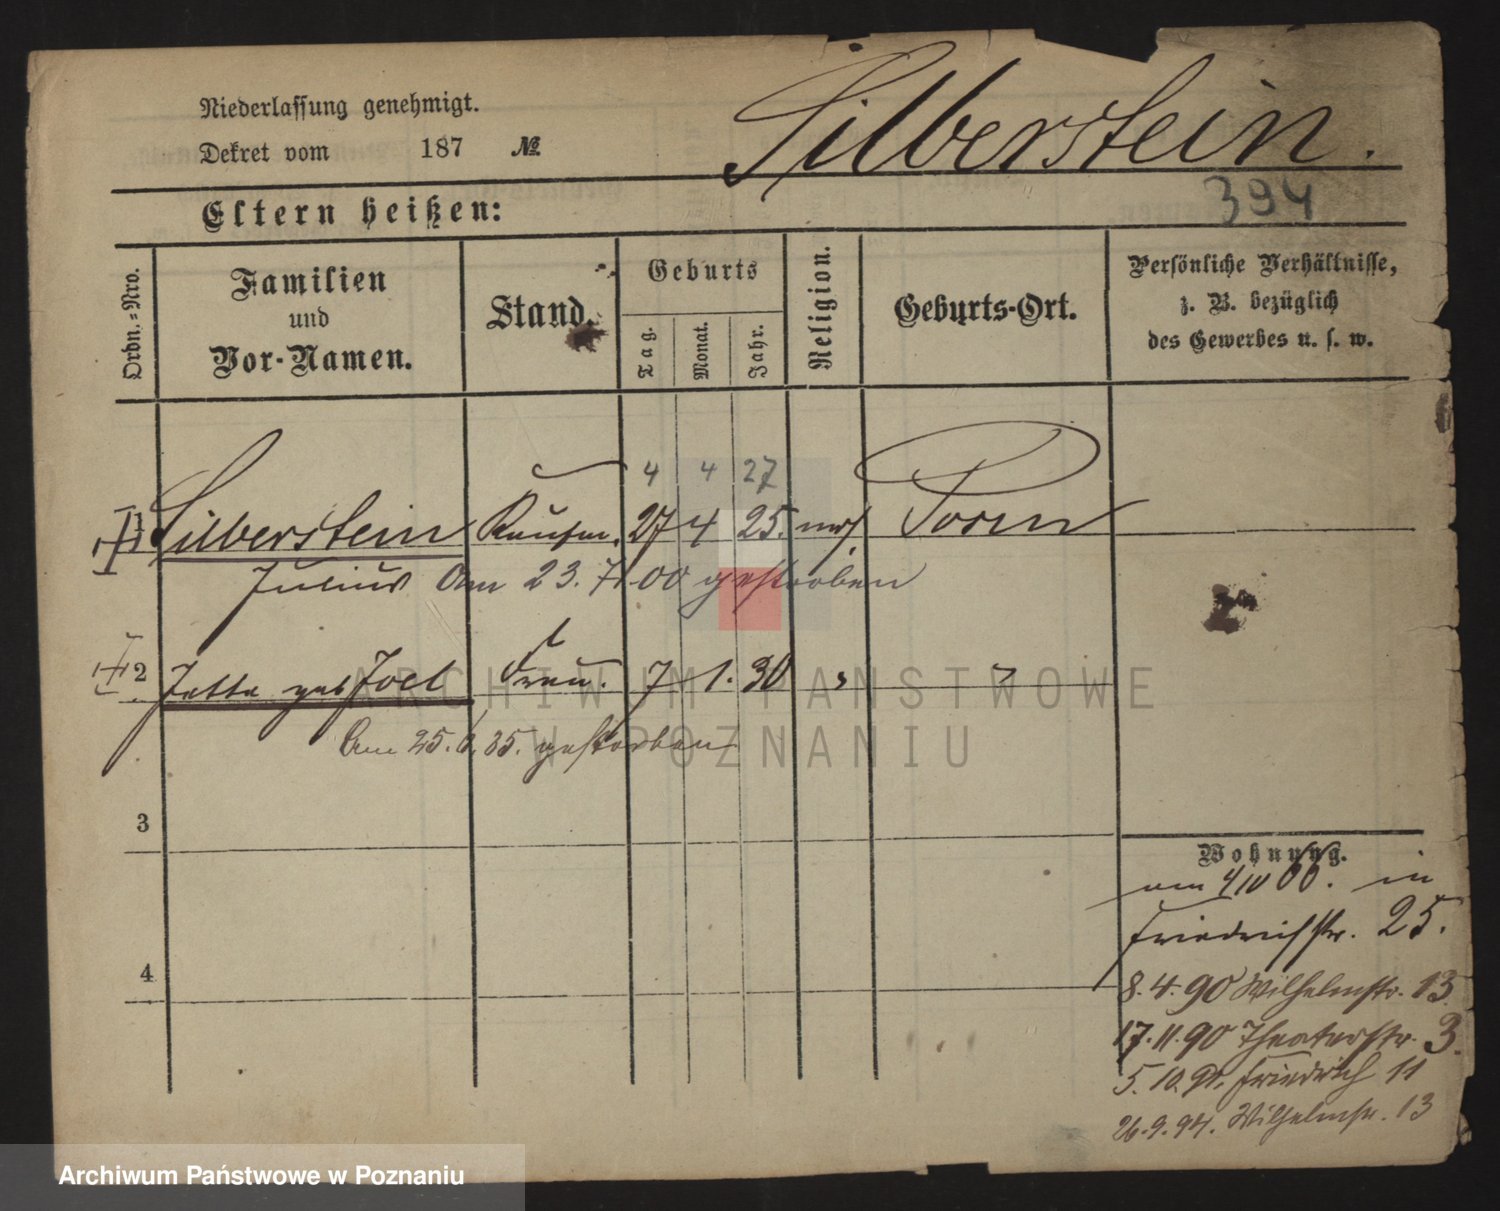 Niederlassung genehmigt.
Dekret vom 187 №
Silberstein.
394
Eltern heißen:
Ordn.-Nro.
Familien
und
Vor-Namen.
Stand.
Geburts
Tag.
Monat.
Jahr.
Religion.
Geburts-Ort.
Persönliche Verhältnisse,
z. B. bezüglich
des Gewerbes u. s. w.
4 4 27
1 Silberstein Kaufm. 27 4 25. mos. Posen
Julius Am 23. 7. 00 gestorben
2 Jette geb Joel Frau. 7 1. 30
Am 25. 6. 85. gestorben
3
4
Wohnung.
66. in
Friedrichstr. 25.
8. 4. 90 Wilhelmstr. 13
17. 11. 90 Theaterstr. 3.
5. 10. 91. Friedrich 11
26. 9. 94. Wilhelmstr. 13
ARCHIWUM PAŃSTWOWE
W POZNANIU
Archiwum Państwowe w Poznaniu